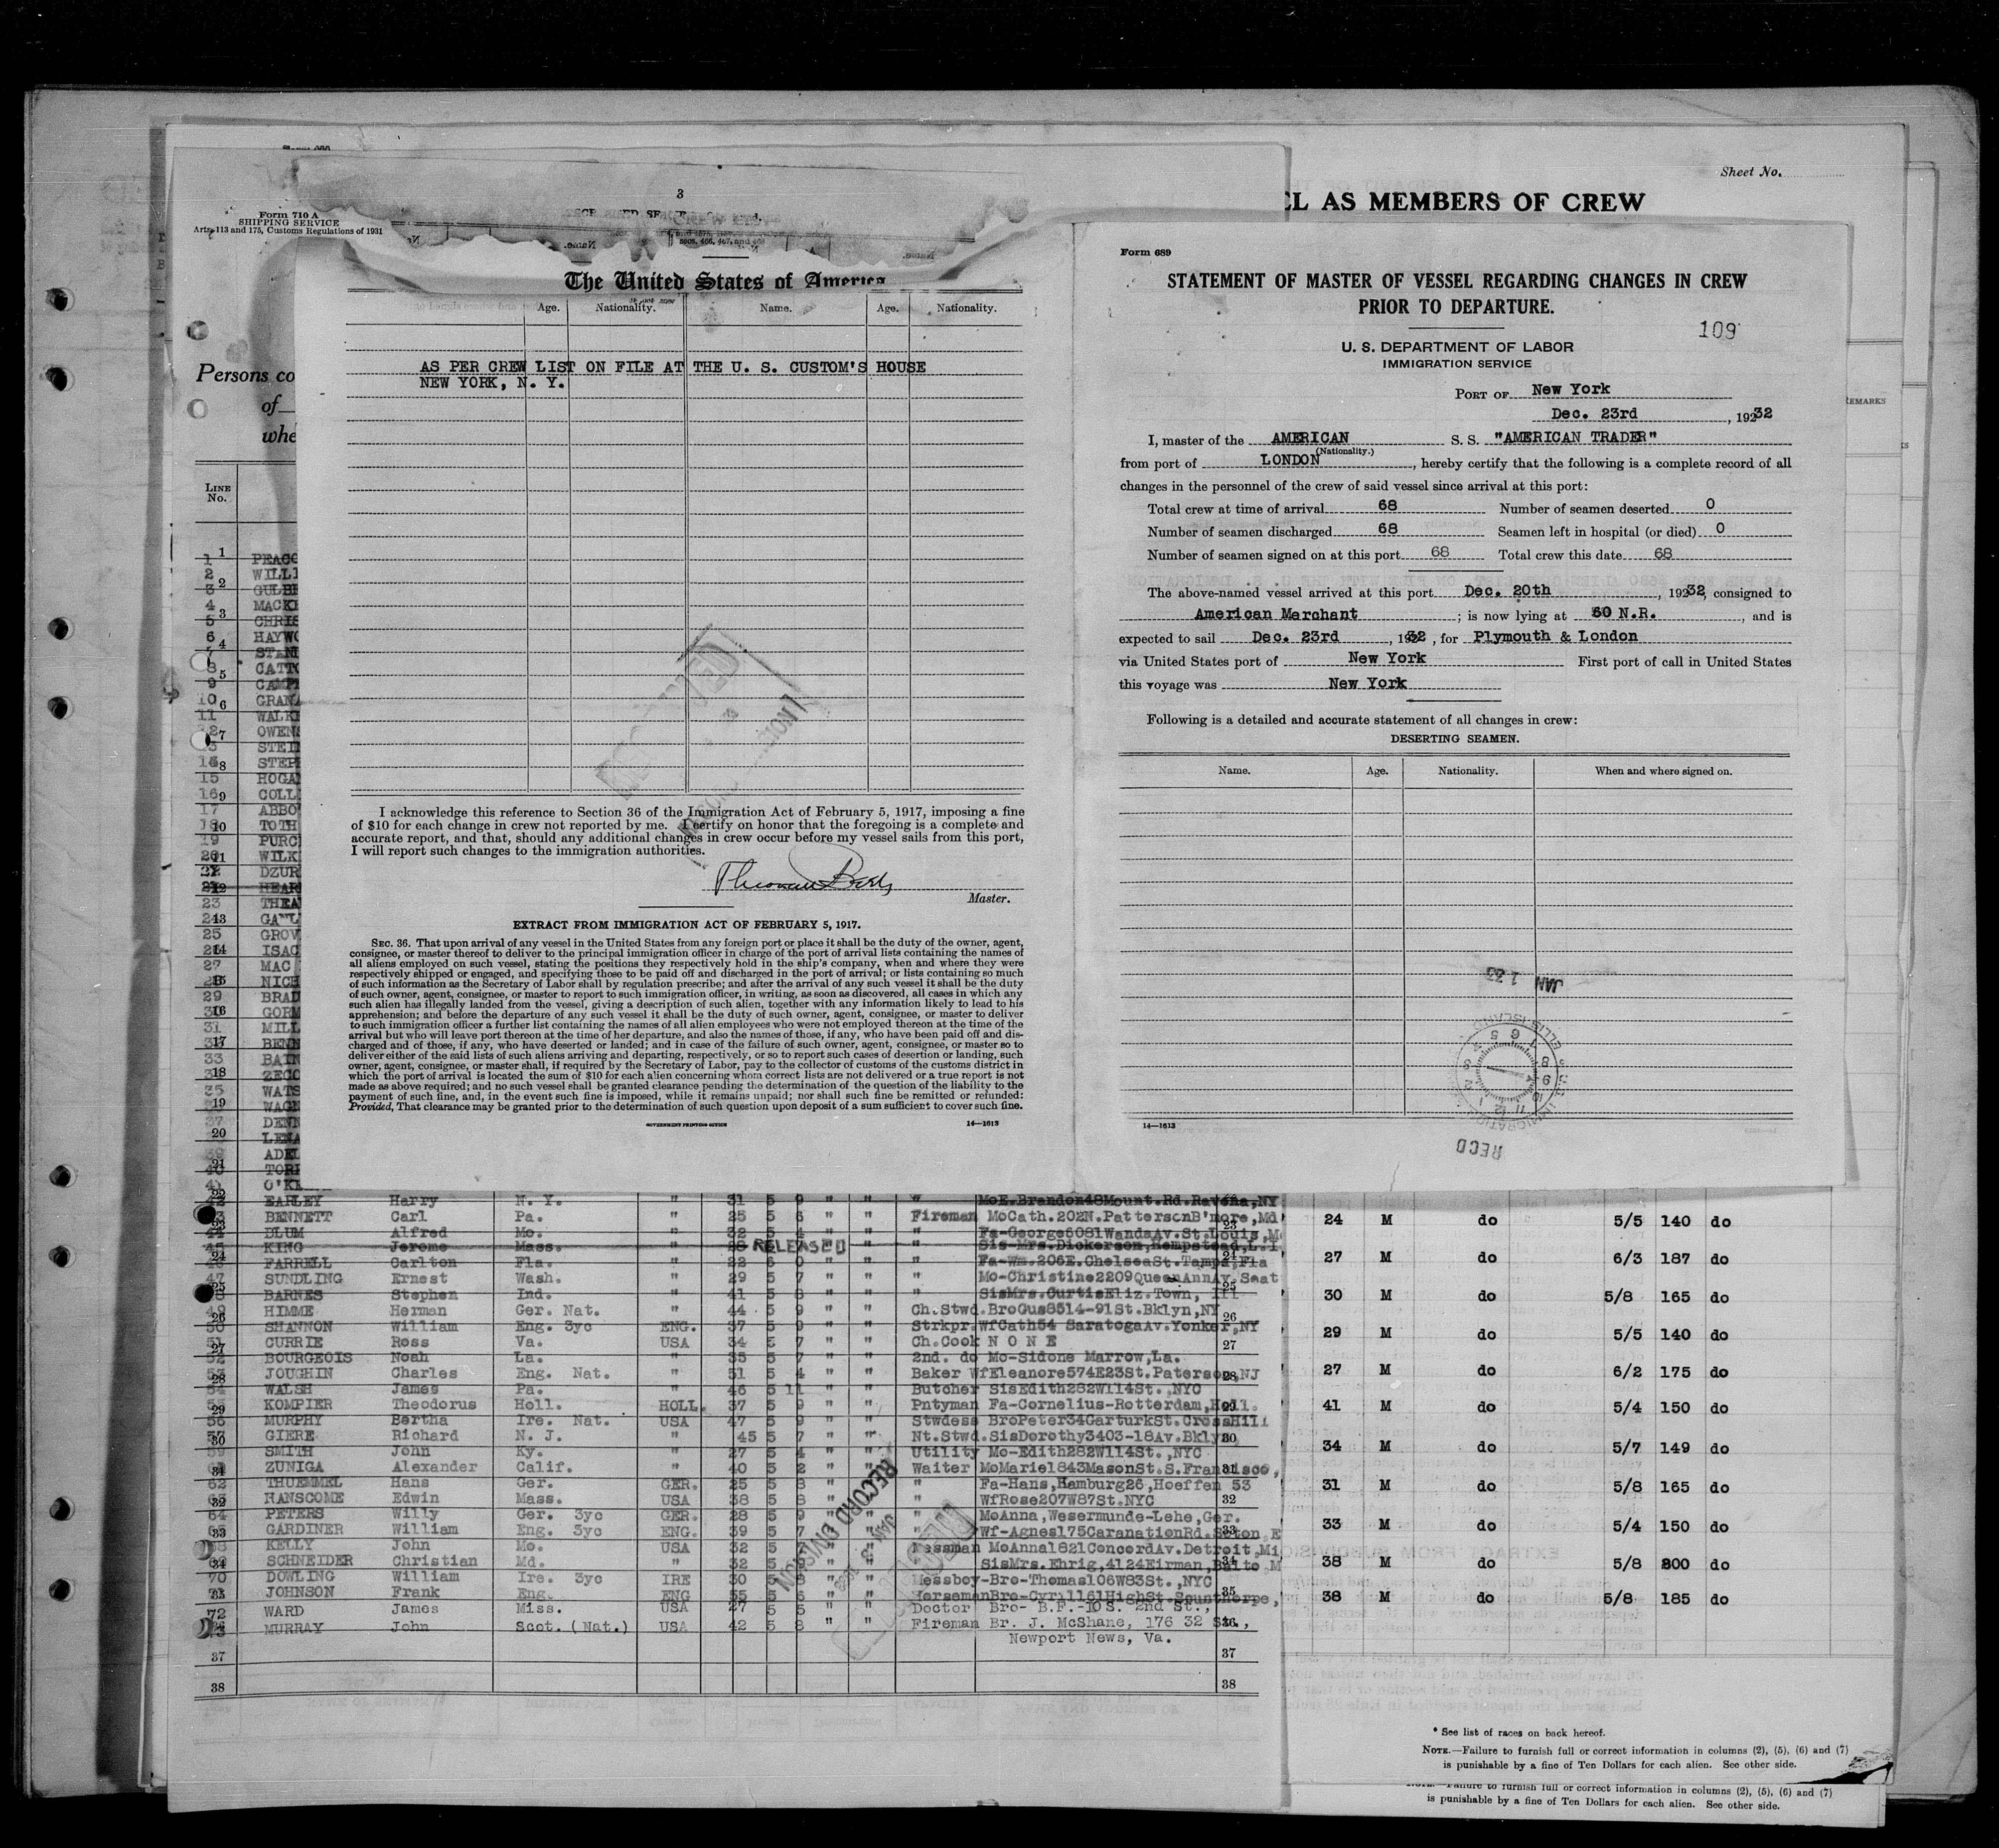 Sheet No.
3
Form 710 A
SHIPPING SERVICE
Arts. 113 and 175, Customs Regulations of 1931
secs. 466, 467, and
The United States of America
Age. Nationality. Name. Age. Nationality.
AS PER CREW LIST ON FILE AT THE U. S. CUSTOM'S HOUSE
NEW YORK, N. Y.
I acknowledge this reference to Section 36 of the Immigration Act of February 5, 1917, imposing a fine
of $10 for each change in crew not reported by me. I certify on honor that the foregoing is a complete and
accurate report, and that, should any additional changes in crew occur before my vessel sails from this port,
I will report such changes to the immigration authorities.
Master.
EXTRACT FROM IMMIGRATION ACT OF FEBRUARY 5, 1917.
SEC. 36. That upon arrival of any vessel in the United States from any foreign port or place it shall be the duty of the owner, agent,
consignee, or master thereof to deliver to the principal immigration officer in charge of the port of arrival lists containing the names of
all aliens employed on such vessel, stating the positions they respectively hold in the ship's company, when and where they were
respectively shipped or engaged, and specifying those to be paid off and discharged in the port of arrival; or lists containing so much
of such information as the Secretary of Labor shall by regulation prescribe; and after the arrival of any such vessel it shall be the duty
of such owner, agent, consignee, or master to report to such immigration officer, in writing, as soon as discovered, all cases in which any
such alien has illegally landed from the vessel, giving a description of such alien, together with any information likely to lead to his
apprehension; and before the departure of any such vessel it shall be the duty of such owner, agent, consignee, or master to deliver
to such immigration officer a further list containing the names of all alien employees who were not employed thereon at the time of the
arrival but who will leave port thereon at the time of her departure, and also the names of those, if any, who have been paid off and dis-
charged and of those, if any, who have deserted or landed; and in case of the failure of such owner, agent, consignee, or master so to
deliver either of the said lists of such aliens arriving and departing, respectively, or so to report such cases of desertion or landing, such
owner, agent, consignee, or master shall, if required by the Secretary of Labor, pay to the collector of customs of the customs district in
which the port of arrival is located the sum of $10 for each alien concerning whom correct lists are not delivered or a true report is not
made as above required; and no such vessel shall be granted clearance pending the determination of the question of the liability to the
payment of such fine, and, in the event such fine is imposed, while it remains unpaid; nor shall such fine be remitted or refunded:
Provided, That clearance may be granted prior to the determination of such question upon deposit of a sum sufficient to cover such fine.
GOVERNMENT PRINTING OFFICE 14—1613
EL AS MEMBERS OF CREW
Form 689
STATEMENT OF MASTER OF VESSEL REGARDING CHANGES IN CREW
PRIOR TO DEPARTURE.
109
U. S. DEPARTMENT OF LABOR
IMMIGRATION SERVICE
PORT OF New York
Dec. 23rd, 1932
I, master of the AMERICAN S. S. "AMERICAN TRADER"
(Nationality.)
from port of LONDON, hereby certify that the following is a complete record of all
changes in the personnel of the crew of said vessel since arrival at this port:
Total crew at time of arrival 68 Number of seamen deserted 0
Number of seamen discharged 68 Seamen left in hospital (or died) 0
Number of seamen signed on at this port 68 Total crew this date 68
The above-named vessel arrived at this port Dec. 20th, 1932, consigned to
American Merchant; is now lying at 60 N.R., and is
expected to sail Dec. 23rd, 1932, for Plymouth & London
via United States port of New York First port of call in United States
this voyage was New York
Following is a detailed and accurate statement of all changes in crew:
DESERTING SEAMEN.
Name. Age. Nationality. When and where signed on.
JAN
RECD
14—1613
REMARKS
Persons co
of
whe
LINE
No.
1 PEACO
2 WILLI
3 GULBR
4 MACK
5 CHRIS
6 HAYWO
7 STAN
8 CATTO
9 CAMP
10 GRAN
11 WALK
OWEN
STEI
STEP
15 HOGA
COLL
17 ABBO
TOTH
19 PURC
WILK
DZUR
HEAR
23 THEA
GAWL
25 GROV
ISAC
27 MAC
NICH
29 BRAD
GORM
31 MILL
BENN
33 BAIN
ZECC
35 WATS
WAGN
37 DENN
LENA
ADEL
TORR
41 O'KE
EARLEY Harry N. Y. " 31 5 9 " " " MoE.Brandon48Mount.Rd.Ravena,NY
BENNETT Carl Pa. " 25 5 6 " " Fireman MoCath.202N.PattersonB'more,Md
BLUM Alfred Mo. " 32 5 " " " Fa-George5081WandaAv.St.Louis,M
KING Jerome Mass. " 28 RELEASED " Sis Mrs.Dickerson,Hempstead,L.I
FARRELL Carlton Fla. " 22 6 0 " " " Fa-Wm.206E.ChelseaSt.Tampa,Fla
47 SUNDLING Ernest Wash. " 29 5 7 " " " Mo-Christine2209QueenAnnAv.Seat
BARNES Stephen Ind. " 41 5 8 " " " SisMrs.CurtisEliz.Town, Ill
49 HIMME Herman Ger. Nat. " 44 5 9 " " Ch.Stwd.BroGus8514-91St.Bklyn,NY
50 SHANNON William Eng. 3yc ENG. 37 5 9 " " Strkpr.WfCath54 SaratogaAv.Yonker,NY
51 CURRIE Ross Va. USA 34 5 7 " " Ch.Cook N O N E
52 BOURGEOIS Noah La. " 35 5 7 " " 2nd. do Mo-Sidone Marrow,La.
53 JOUGHIN Charles Eng. Nat. " 51 5 4 " " Baker WfEleanore574E23St.Paterson,NJ
54 WALSH James Pa. " 46 5 11 " " Butcher SisEdith282W114St.,NYC
KOMPIER Theodorus Holl. HOLL. 37 5 9 " " Pntyman Fa-Cornelius-Rotterdam,Holl.
56 MURPHY Bertha Ire. Nat. USA 47 5 9 " " Stwdess BroPeter34GarturkSt.CrossHill
57 GIERE Richard N. J. " 45 5 7 " " Nt.Stwd.SisDorothy3403-18Av.Bklyn
SMITH John Ky. " 27 5 4 " " Utility Mo-Edith282W114St.,NYC
ZUNIGA Alexander Calif. " 40 5 2 " " Waiter MoMarie1843MasonSt.S.Francisco,
62 THUEMMEL Hans Ger. GER. 25 5 8 " " Fa-Hans,Hamburg26,Hoeffen 53
HANSCOME Edwin Mass. USA 38 5 8 " " WfRose207W87St.NYC
64 PETERS Willy Ger. 3yc GER. 28 5 9 " " MoAnna,Wesermunde-Lehe,Ger.
GARDINER William Eng. 3yc ENG. 39 5 7 " " Wf-Agnes175CaranationRd.Seton E
KELLY John Mo. USA 32 5 " Messman MoAnna1821ConcordAv.Detroit,Mi
SCHNEIDER Christian Md. " 32 5 9 " " SisMrs.Ehrig,4124Eirman,Balto M
70 DOWLING William Ire. 3yc IRE 30 5 8 " Messboy-Bro-Thomas106W83St.,NYC
JOHNSON Frank Eng. ENG 35 5 6 " HorsemanBro-Cyril161HighSt.Scunthorpe,
72 WARD James Miss. USA 27 5 5 " " Doctor Bro- B.F.-10 S. 2nd St.,
MURRAY John Scot.(Nat.) USA 42 5 8 " " Fireman Br. J. McShane, 176 32 St.,
Newport News, Va.
37 37
38 38
RECORD DIVISION
24 M do 5/5 140 do
27 M do 6/3 187 do
30 M do 5/8 165 do
29 M do 5/5 140 do
27 M do 6/2 175 do
41 M do 5/4 150 do
34 M do 5/7 149 do
31 M do 5/8 165 do
33 M do 5/4 150 do
38 M do 5/8 200 do
38 M do 5/8 185 do
* See list of races on back hereof.
NOTE.—Failure to furnish full or correct information in columns (2), (5), (6) and (7)
is punishable by a fine of Ten Dollars for each alien. See other side.
NOTE.—Failure to furnish full or correct information in columns (2), (5), (6) and (7)
is punishable by a fine of Ten Dollars for each alien. See other side.